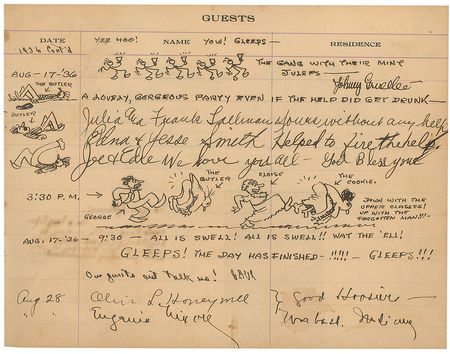 GUESTS
YEE HOO! NAME YOW! GLEEPS—
DATE RESIDENCE
1936 Cont'd
AUG-17-'36 THE GANG WITH THEIR MINT JULEPS—
THE BUTLER
A LOVELY, GORGEOUS PARTY EVEN IF THE HELP DID GET DRUNK—
BUTLER
Julia and Frank without any help
Edna & Jesse Smith Helped to fire the help.
Joe & We love you all— God Bless you
3:30 P.M. GEORGE THE BUTLER ELOISE THE COOKIE.
DOWN WITH THE UPPER CLASSES! UP WITH THE FORGOTTEN MAN!!!—
AUG. 17-'36— 9:30 — ALL IS SWELL! ALL IS SWELL!! WAT THE 'ELL!
GLEEPS! THE DAY HAS FINISHED—!!!!— GLEEPS!!!
us!
Aug 28 Olivia L. Honeywell good Hoosier
" " Eugenia Wabash, Indiana